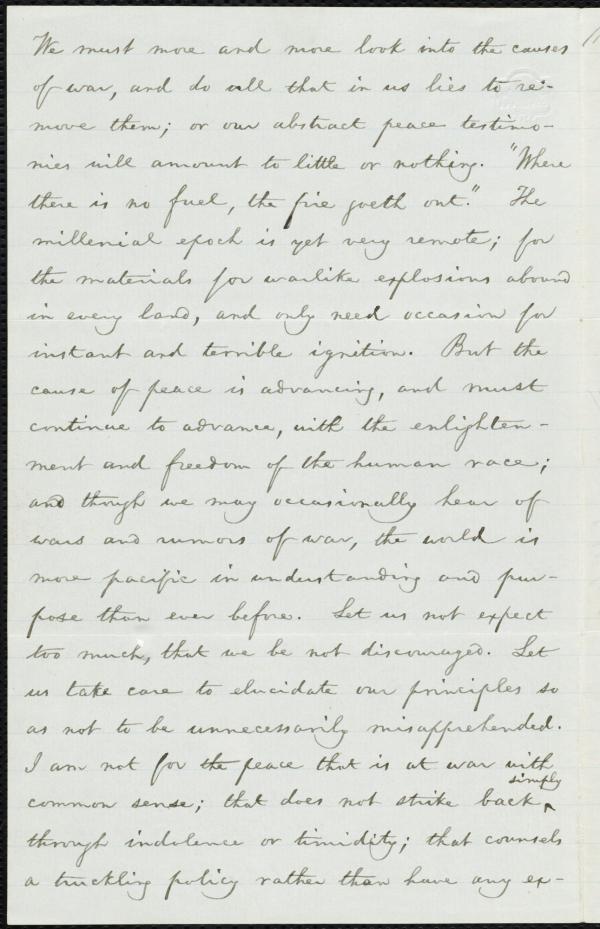 We must more and more look into the causes
of war, and do all that in us lies to re-
move them; or our abstract peace testimo-
nies will amount to little or nothing. "Where
there is no fuel, the fire goeth out." The
millenial epoch is yet very remote; for
the materials for warlike explosions abound
in every land, and only need occasion for
instant and terrible ignition. But the
cause of peace is advancing, and must
continue to advance, with the enlighten-
ment and freedom of the human race;
and though we may occasionally hear of
wars and rumors of war, the world is
more pacific in understanding and pur-
pose than ever before. Let us not expect
too much, that we be not discouraged. Let
us take care to elucidate our principles so
as not to be unnecessarily misapprehended.
I am not for the peace that is at war with
simply
common sense; that does not strike back
through indolence or timidity; that counsels
a truckling policy rather than have any ex-